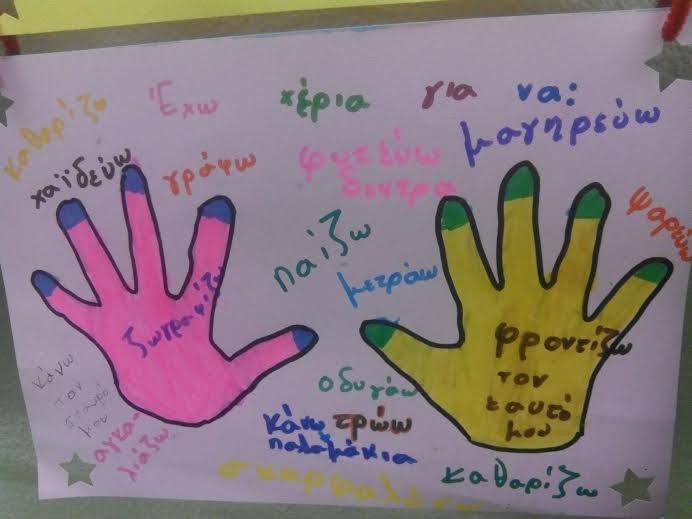 Έχω χέρια για να:
καθαρίζω
χαϊδεύω
γράφω
φυτεύω
δεντρα
μαγηρεύω
ψαρεύω
παίζω
μετράω
ζωγραφίζω
φροντίζω
τον
εαυτό
μου
κάνω
τον
σταυρό
μου
αγκα-
λιάζω
οδυγάω
τρώω
κάνω
παλαμάκια
σκαρφαλώνω
καθαρίζω